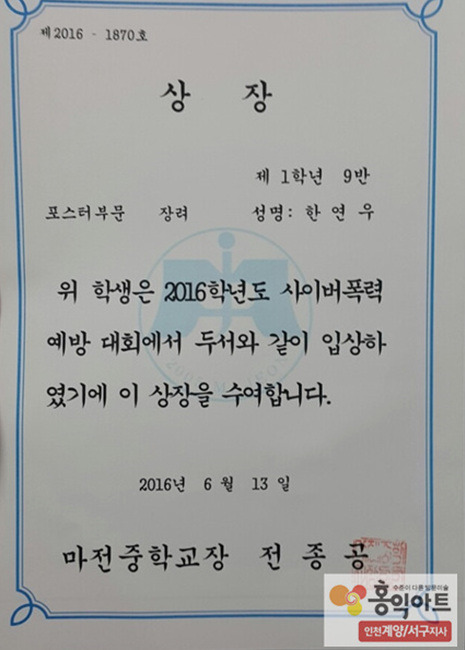 제2016 - 1870호
상 장
제 1학년 9반
포스터부문 장려 성명: 한 연 우
위 학생은 2016학년도 사이버폭력
예방 대회에서 두서와 같이 입상하
였기에 이 상장을 수여합니다.
2016년 6 월 13 일
마전중학교장 전 종 공
수준이 다른 방문미술
홍익아트
인천계양/서구지사